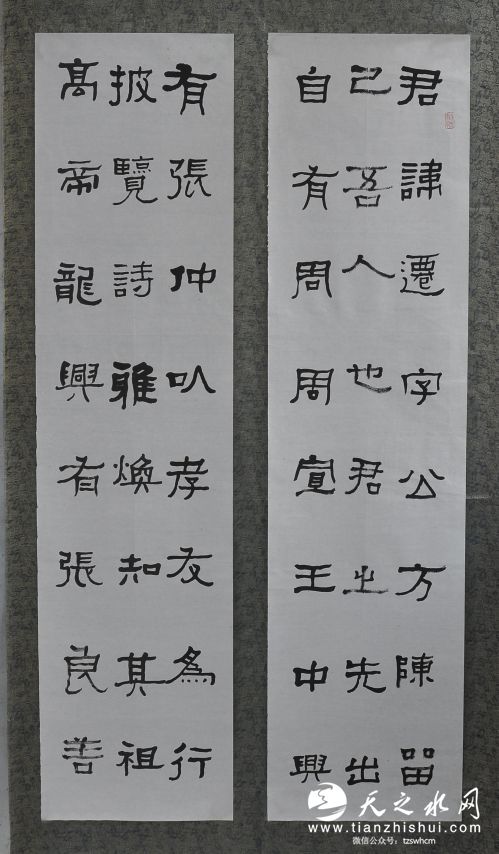 君諱遷字公方陳留
己吾人也君之先出
自有周周宣王中興
有張仲㕥孝友為行
披覽詩雅煥知其祖
高帝龍興有張良善
天之水网
www.tianzhishui.com
微信公众号：tzswhcm